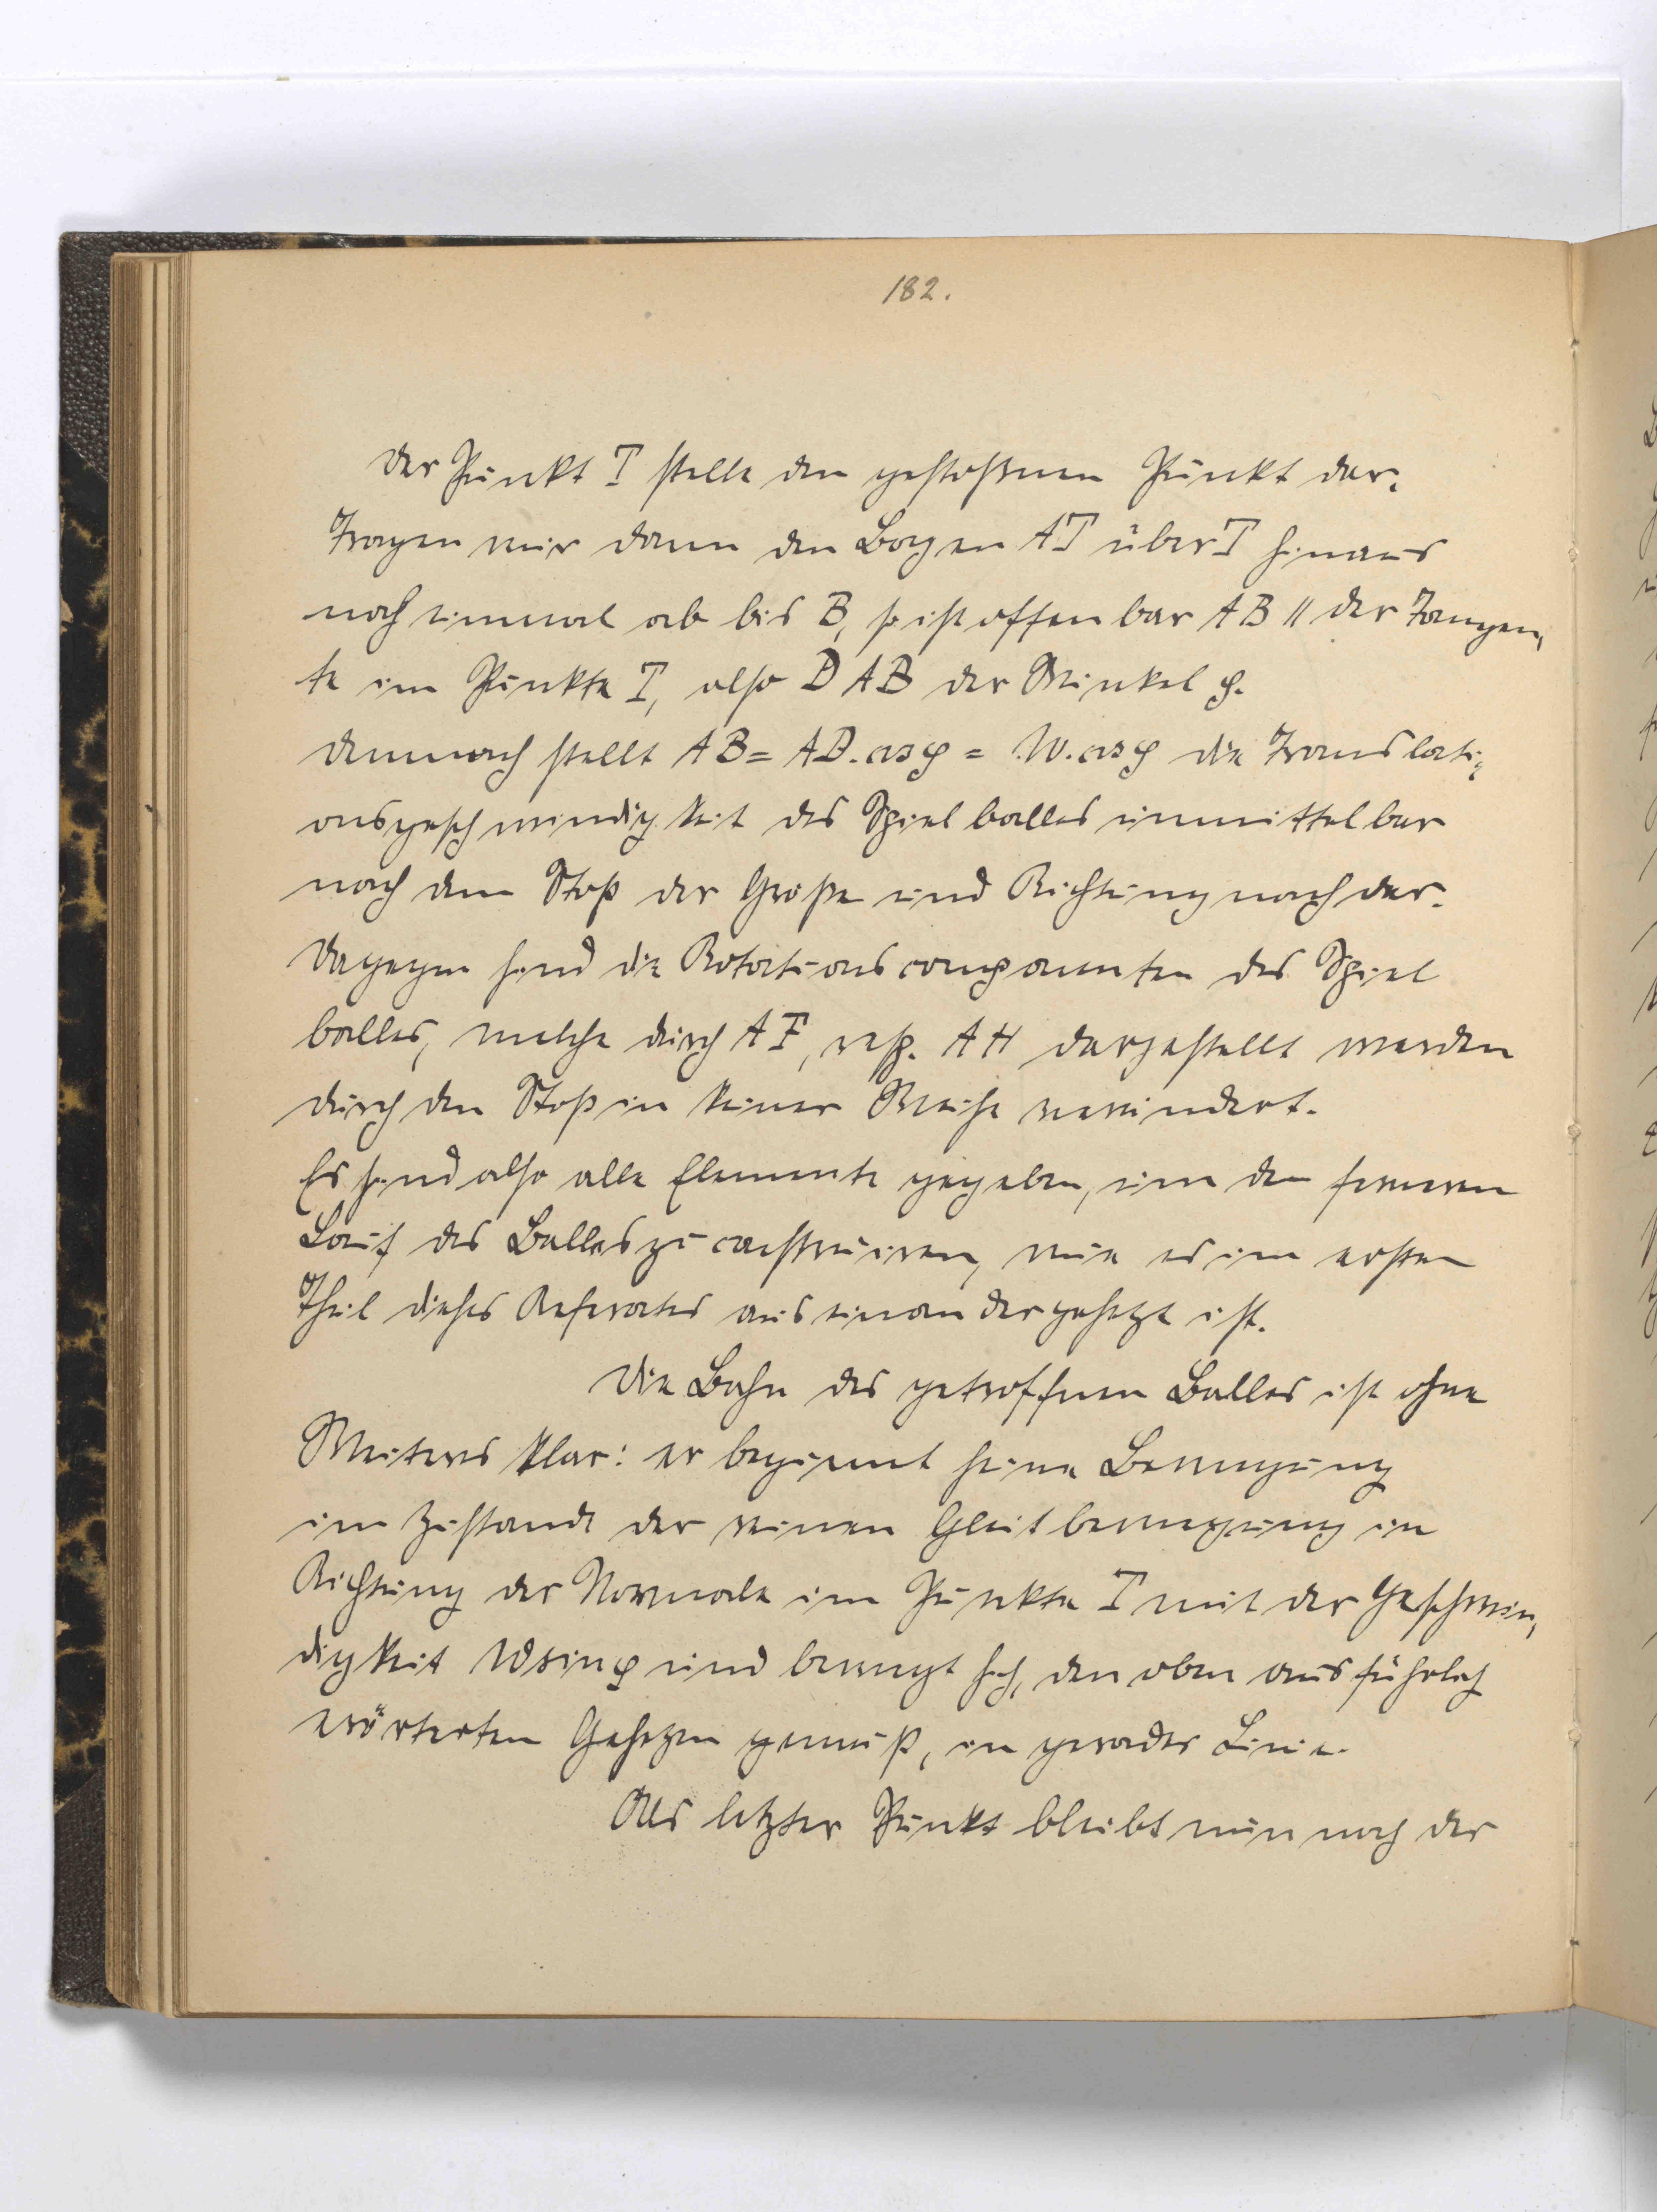 182.
Der Punkt T stelle den gestoßenen Punkt dar.
Tragen wir dann den Bogen AT über T hinaus
noch einmal ab bis B, so ist offenbar AB || der Tangen-
te im Punkte T, also DAB der Winkel φ.
Demnach stellt AB = AD. cos φ = W. cos φ die Translati-
onsgeschwindigkeit des Spielballes unmittelbar
nach dem Stoß der Größe und Richtung nach dar.
Dagegen sind die Rotationscomponenten des Spiel
balles, welche durch AF, resp. AH dargestellt werden
durch den Stoß in keiner Weise verändert.
Es sind also alle Elemente gegeben, um den ferneren
Lauf des Balles zu construiren, wie es im ersten
Theil dieses Referates auseinandergesetzt ist.
Die Bahn des getroffenen Balles ist ohne
Weiteres klar: er beginnt seine Bewegung
im Zustande der reinen Gleitbewegung in
Richtung der Normale im Punkte T mit der Geschwin-
digkeit W sin φ und bewegt sich, den oben ausführlich
erörterten Gesetzen gemäß, in gerader Linie.
Als letzter Punkt bleibt nun noch der